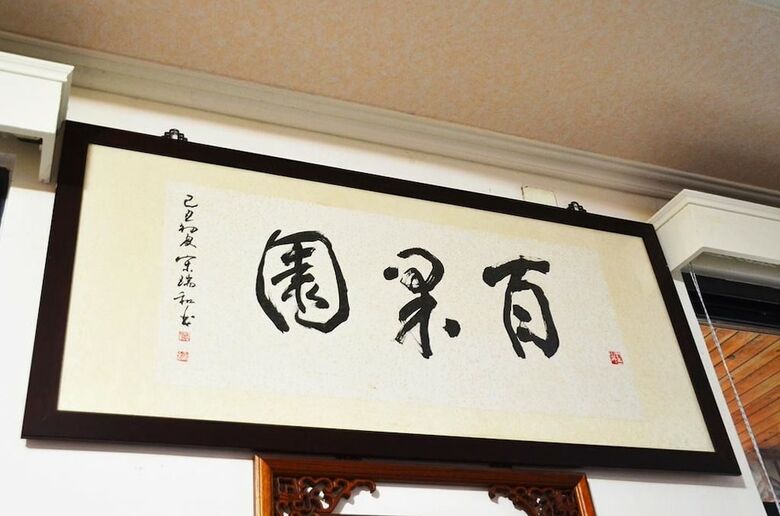 百果園
己丑初夏宋瑞和書